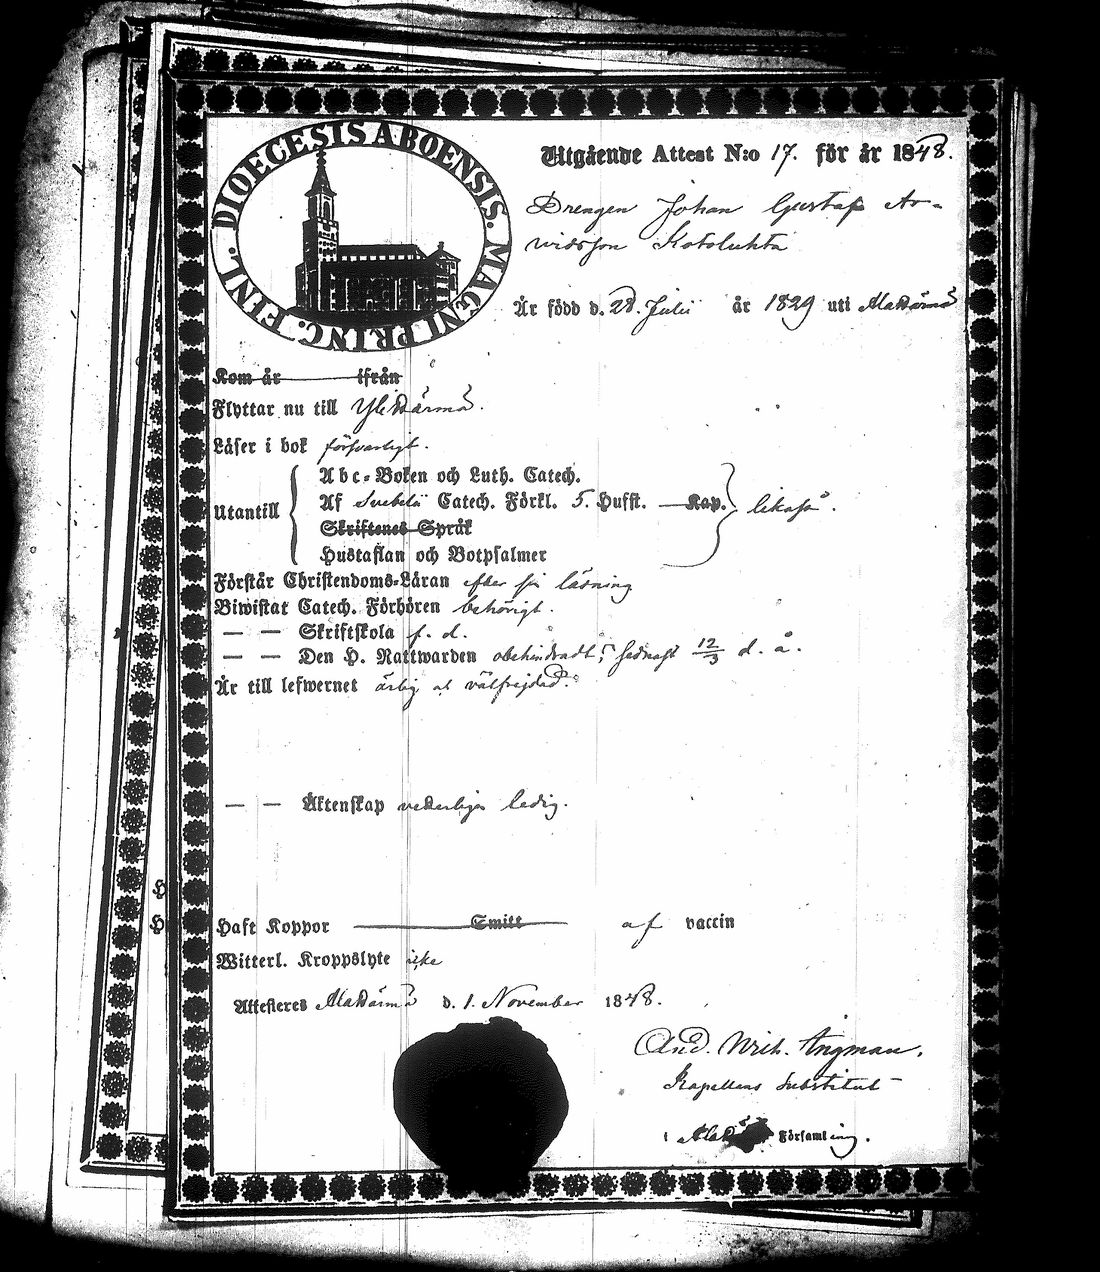 DIOECESIS ABOENSIS. MAGNI PRINC. FINL.
Utgående Attest N:o 17. för år 1848.
Drengen Johan Gustaf Ar-
widsson
Är född d. 28. Julii år 1829 uti Alakärmä
Kom år ifrån
Flyttar nu till Ylikärmä.
Läser i bok försvarligt.
Utantill
Abc-Boken och Luth. Catech.
Af Svebelii Catech. Förkl. 5. Hufst. Kap.
likaså.
Skriftenes Språk
Hustaflan och Botpsalmer
Förstår Christendoms-Läran efter sin läsning
Biwistat Catech. Förhören behörigt.
— — Skriftskola f. d.
— — Den H. Nattwarden obehindradt, sednast 12/3 d. å.
Är till lefwernet ärlig och välfrejdad.
— — Äktenskap veterligen ledig.
Haft Koppor Smitt af vaccin
Witterl. Kroppslyte icke
Attesteras Alakärmä d. 1. November 1848.
And. Wilh. Ingman.
Kapellans Substitut
i Församling.